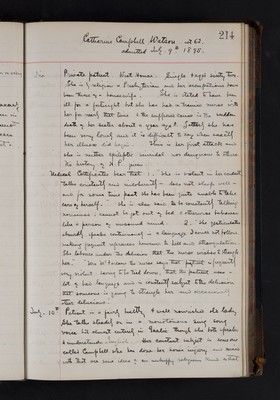 214
Catharine Campbell Watson act 62.
admitted July 9th 1898.
Private patient West House. Single Aged sixty two.
She is religion a Presbyterian and her occupations have
been those of a housewife. She is stated to have been
ill for a fortnight but she has had a trained nurse with
her for
death of her sister about a year ago. she has
been very lonely and it is difficult to say when exactly
her illness did begin. This is her first attack and
she is neither epileptic, suicidal nor dangerous to others
No history of H. P. given.
Medical Certificates bear that 1.- She is violent in her conduct
talks constantly and incoherently - does not sleep well -
and for some time past she has been quite unable to take
care of herself. She is also said to be constantly talking
nonsense; cannot be got out of bed & otherwise behaves
like a person of unsound mind 2. She gesticulates
speaks continuously in a language I could not follow
making frequent references however to hell and strangulation
She labours under the delusion that the nurse wished to
her. says that patient is frequently
very violent having to be tied down, that the patient uses a
lot of bad language and is constantly subject to the delusion
that someone is going to strangle her and occasionally
other delusions.
July. 10th Patient is a fairly healthy & well nourished old lady
She talks steadily on in a monotonous sing song
voice but almost entirely in Gaelic though she both speaks
& understands English. Her constant subject is
called Campbell who has done her some injury, and
with that are some ideas of an unhappy religious kind